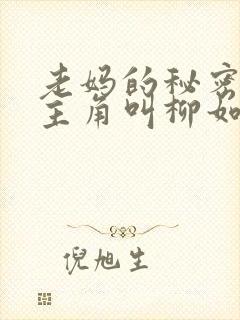 老妈的秘密
主角叫柳如
倪旭生